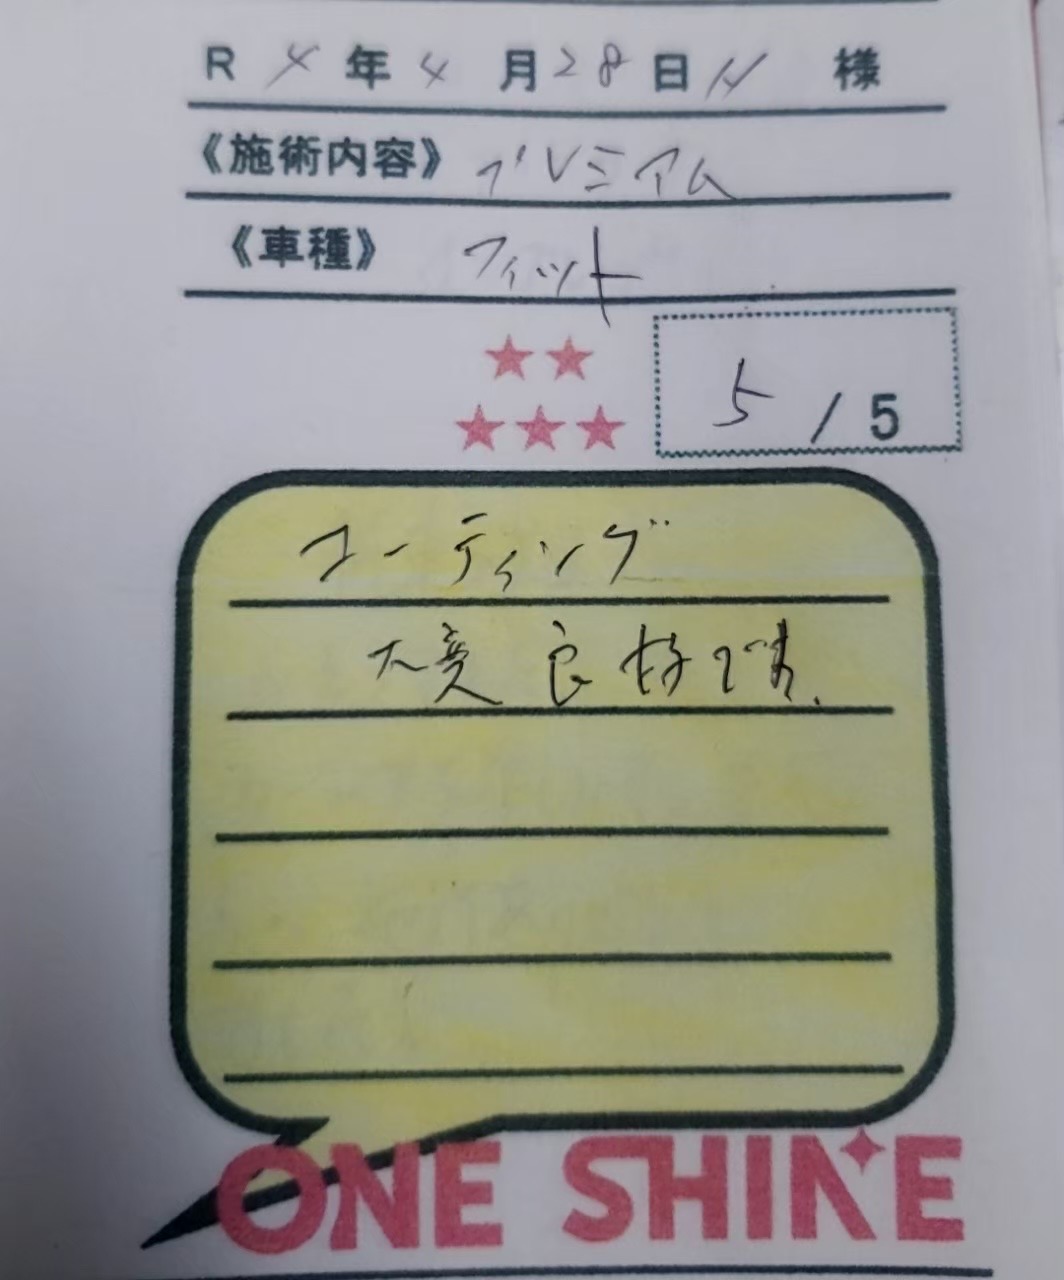 R 4年4月28日 H 様
《施術内容》プレミアム
《車種》フィット
★★
★★★
5/5
コーティング
大変良好です.
ONE SHINE